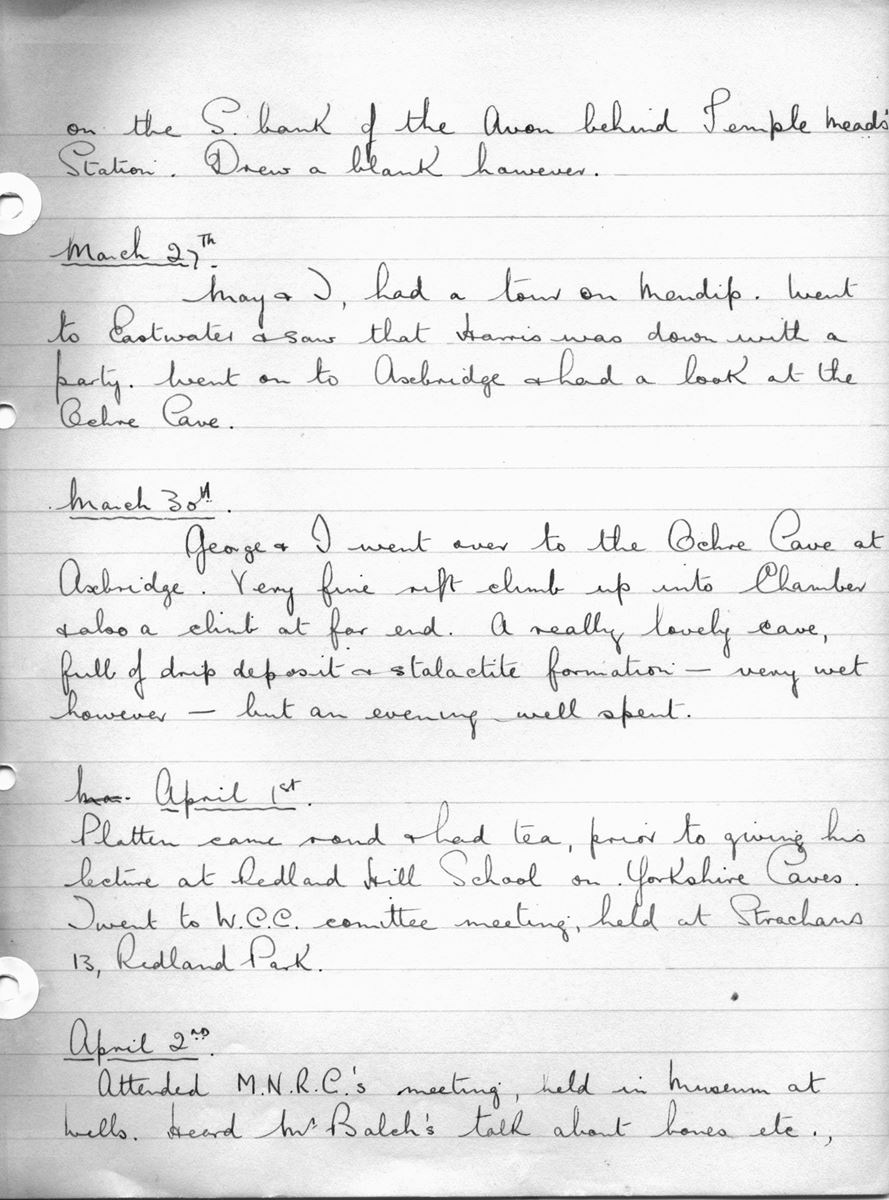 on the S. bank of the Avon behind Temple Meads
Station. Drew a blank however.
March 27th.
May & I, had a tour on Mendip. Went
to Eastwater & saw that Harris was down with a
party. Went on to Axbridge & had a look at the
Ochre Cave.
March 30th.
George & I went over to the Ochre Cave at
Axbridge. Very fine rift climb up into Chamber
& also a climb at far end. A really lovely cave,
full of drip deposit & stalactite formation — very wet
however — but an evening well spent.
Ma. April 1st.
Platten came round & had tea, prior to giving his
lecture at Redland Hill School on Yorkshire Caves.
I went to W.C.C. comittee meeting, held at Strachans
13, Redland Park.
April 2nd.
Attended M.N.R.C.'s meeting, held in Museum at
Wells. Heard Mr Balch's talk about bones etc.,